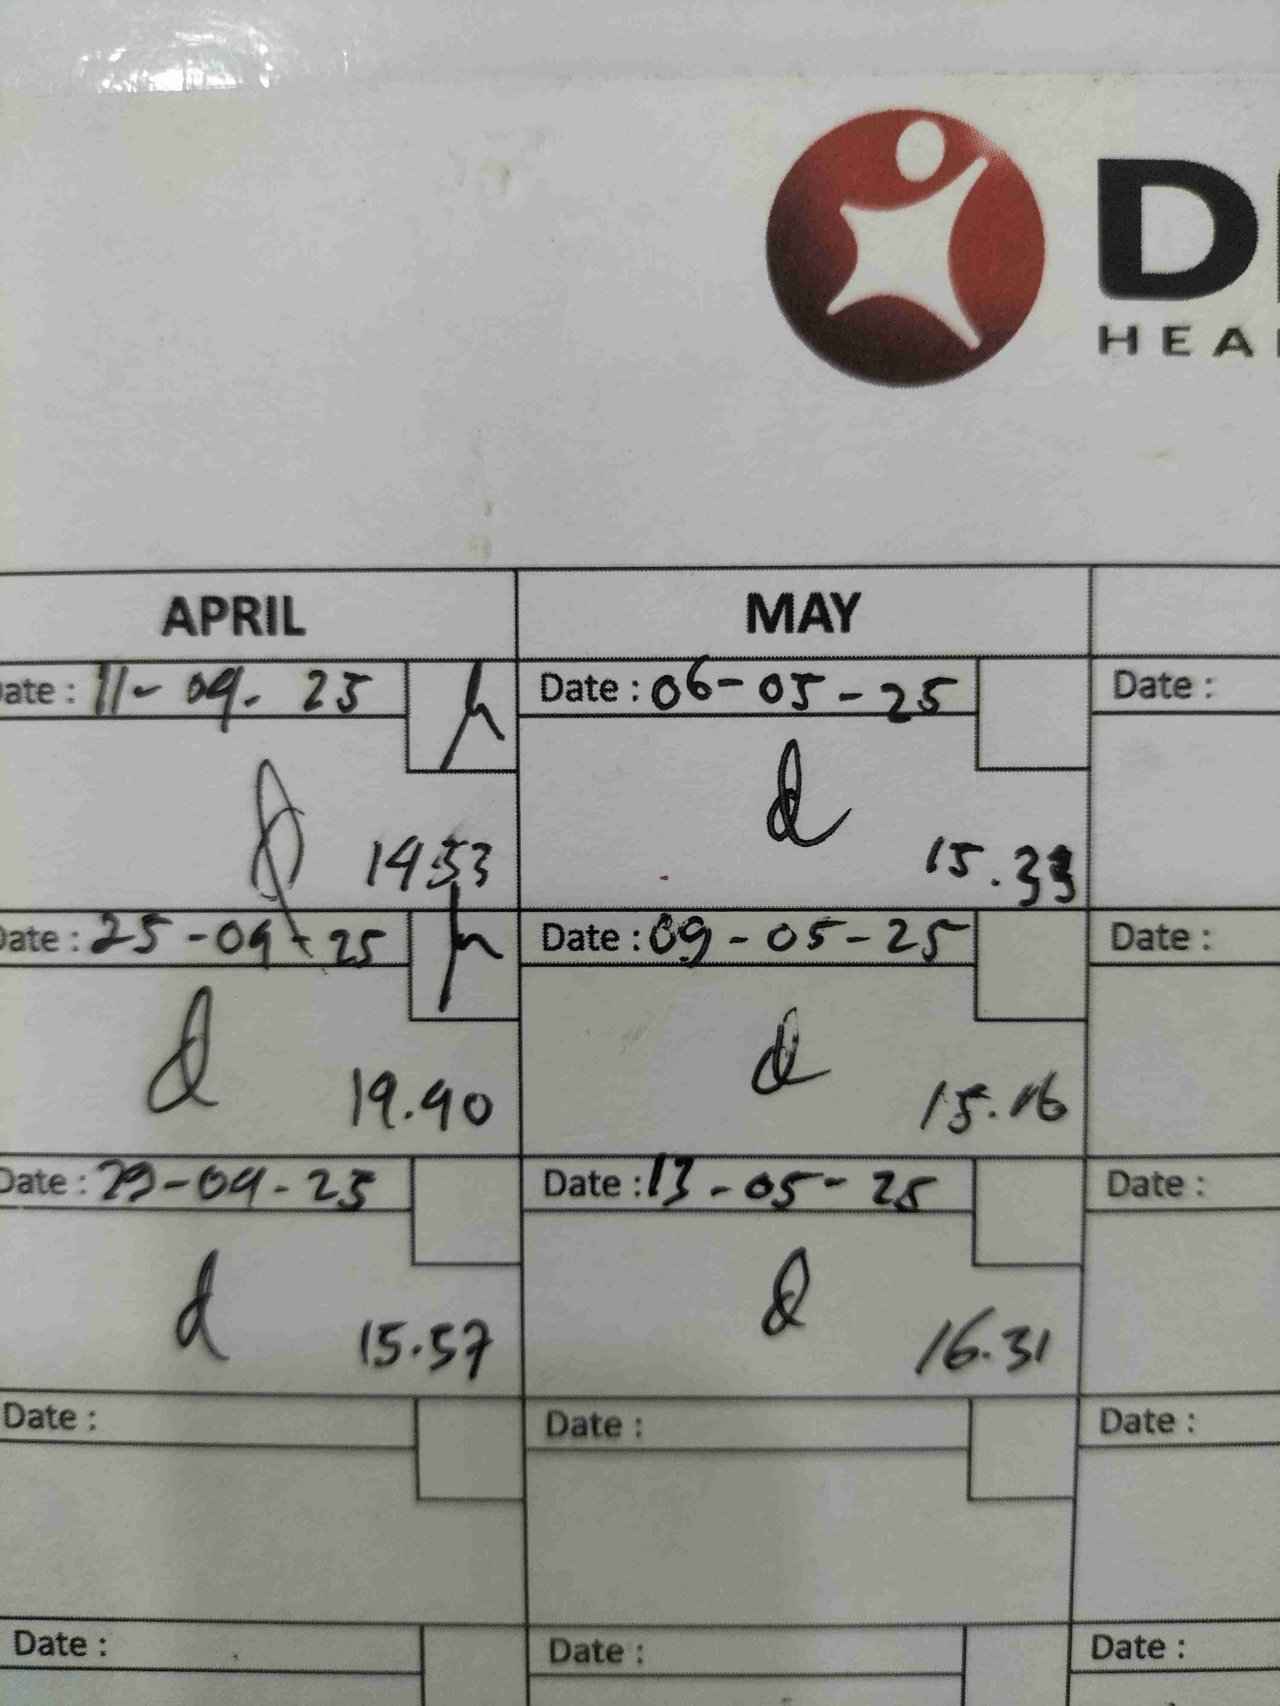 HEA
APRIL MAY
Date : 11- 04- 25 Date : 06-05-25 Date :
14.53 15.33
Date : 25-04-25 Date : 09-05-25 Date :
14.40 15.16
Date : 29-04-25 Date : 13-05-25 Date :
15.57 16.31
Date : Date : Date :
Date : Date : Date :